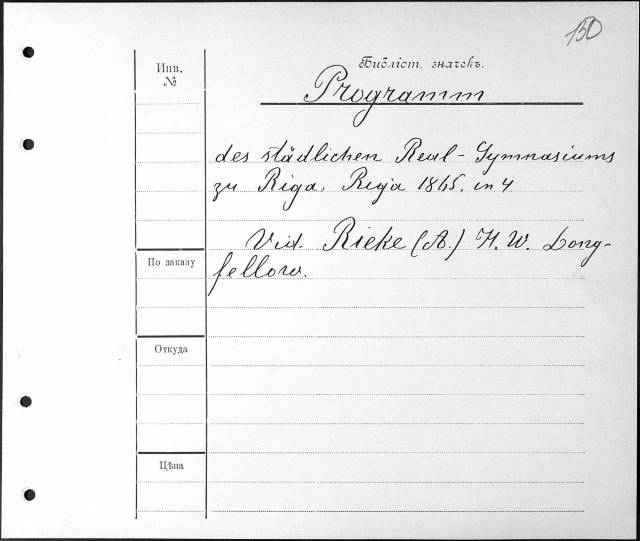 150
Инв.
№
Библіот. значекъ.
Programm
des städlichen Real-Gymnasiums
zu Riga. Riga 1865. in 4
Vid. Rieke (A.) H. W. Long-
fellow.
По заказу
Откуда
Цѣна